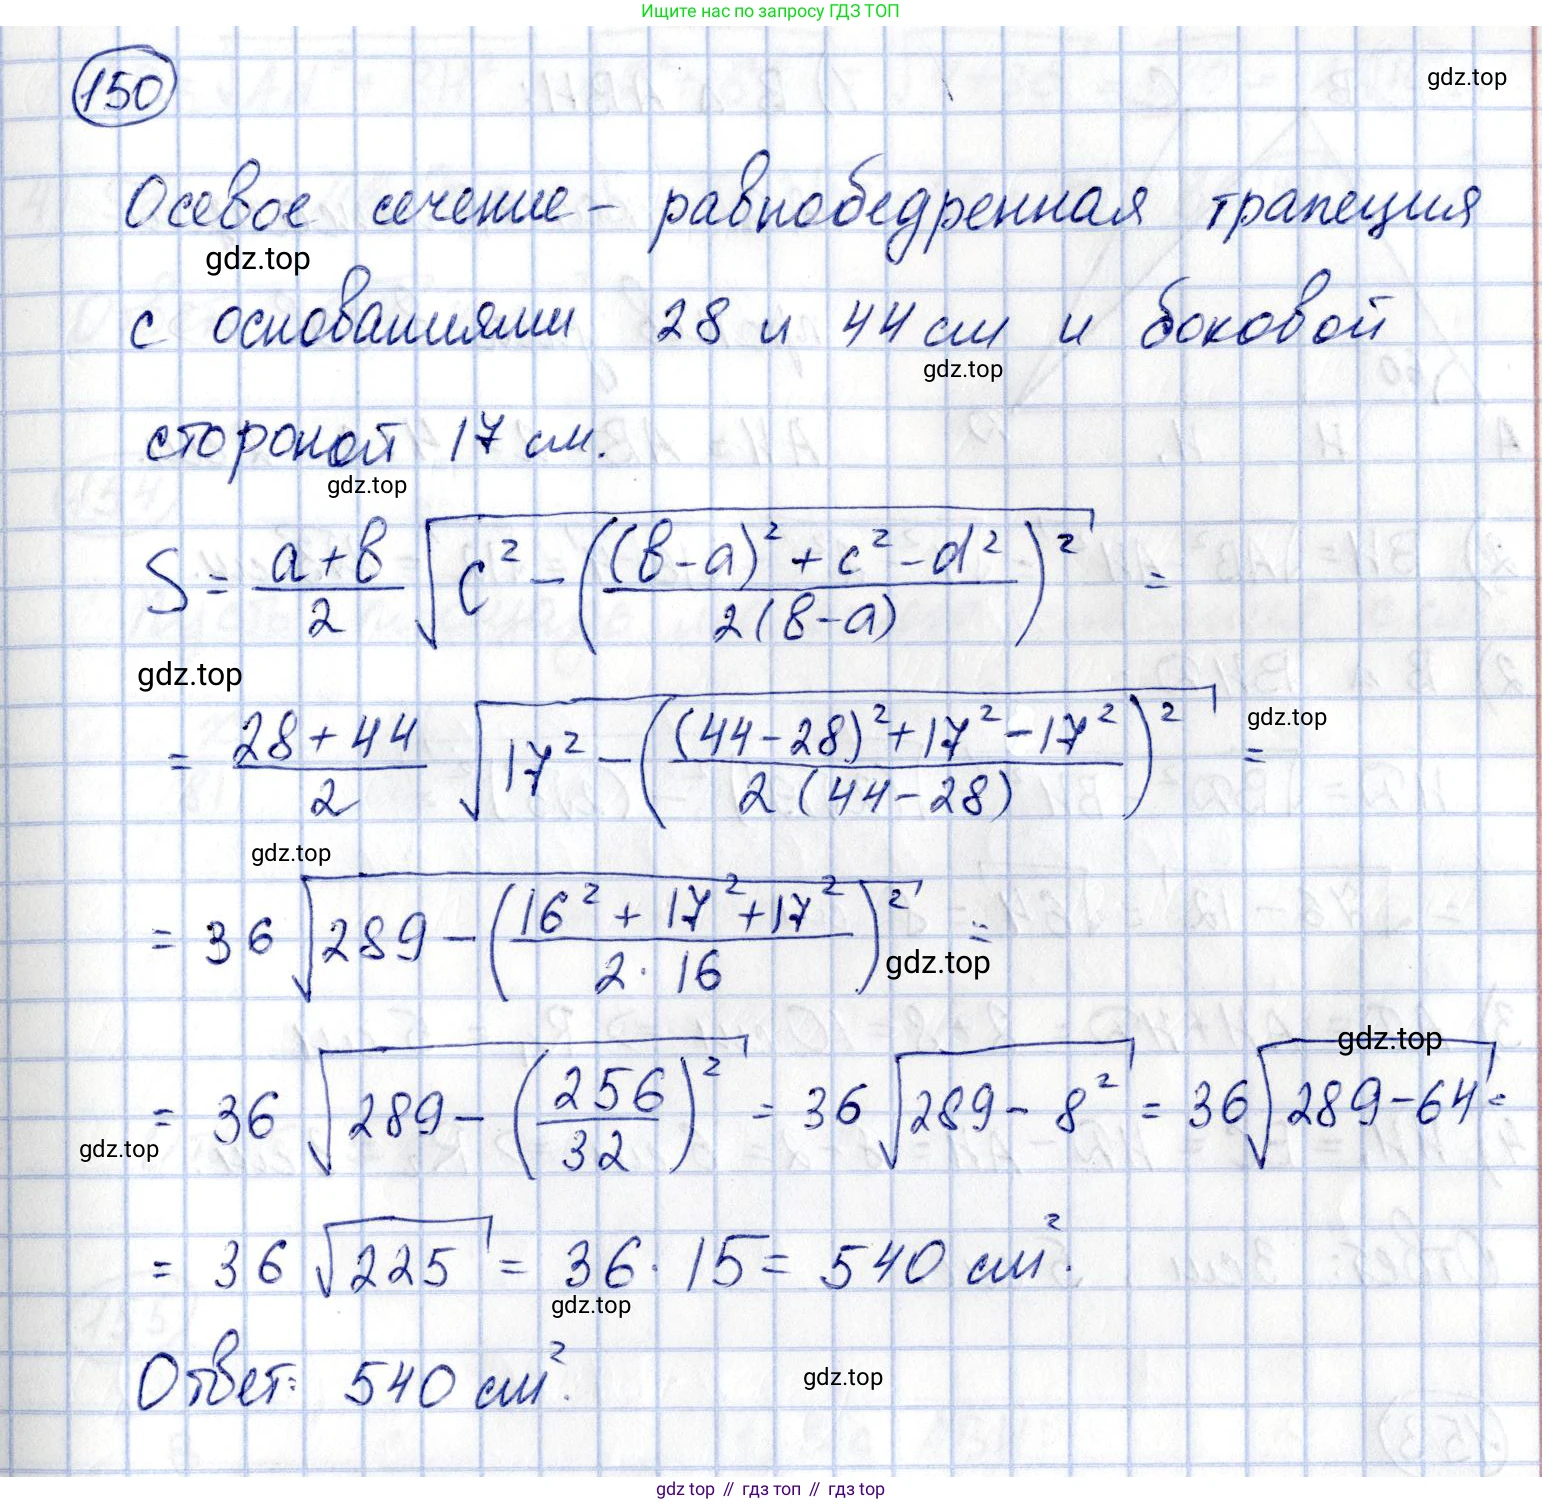 Ищите нас по запросу ГДЗ ТОП
150
gdz.top
Осевое сечение – равнобедренная трапеция
gdz.top
с основаниями 28 и 44 см и боковой
gdz.top
стороной 17 см.
gdz.top
S = (a+b)/2 √(c² − (((b−a)² + c² − d²)/(2(b−a)))²) =
gdz.top
= (28+44)/2 √(17² − (((44−28)² + 17² − 17²)/(2(44−28)))²) =
gdz.top
gdz.top
= 36 √(289 − ((16² + 17² + 17²)/(2·16))²) =
gdz.top
gdz.top
= 36 √(289 − (256/32)²) = 36 √(289 − 8²) = 36 √(289−64) =
gdz.top
= 36 √225 = 36 · 15 = 540 см².
gdz.top
Ответ: 540 см².
gdz.top
gdz top // гдз топ // гдз top